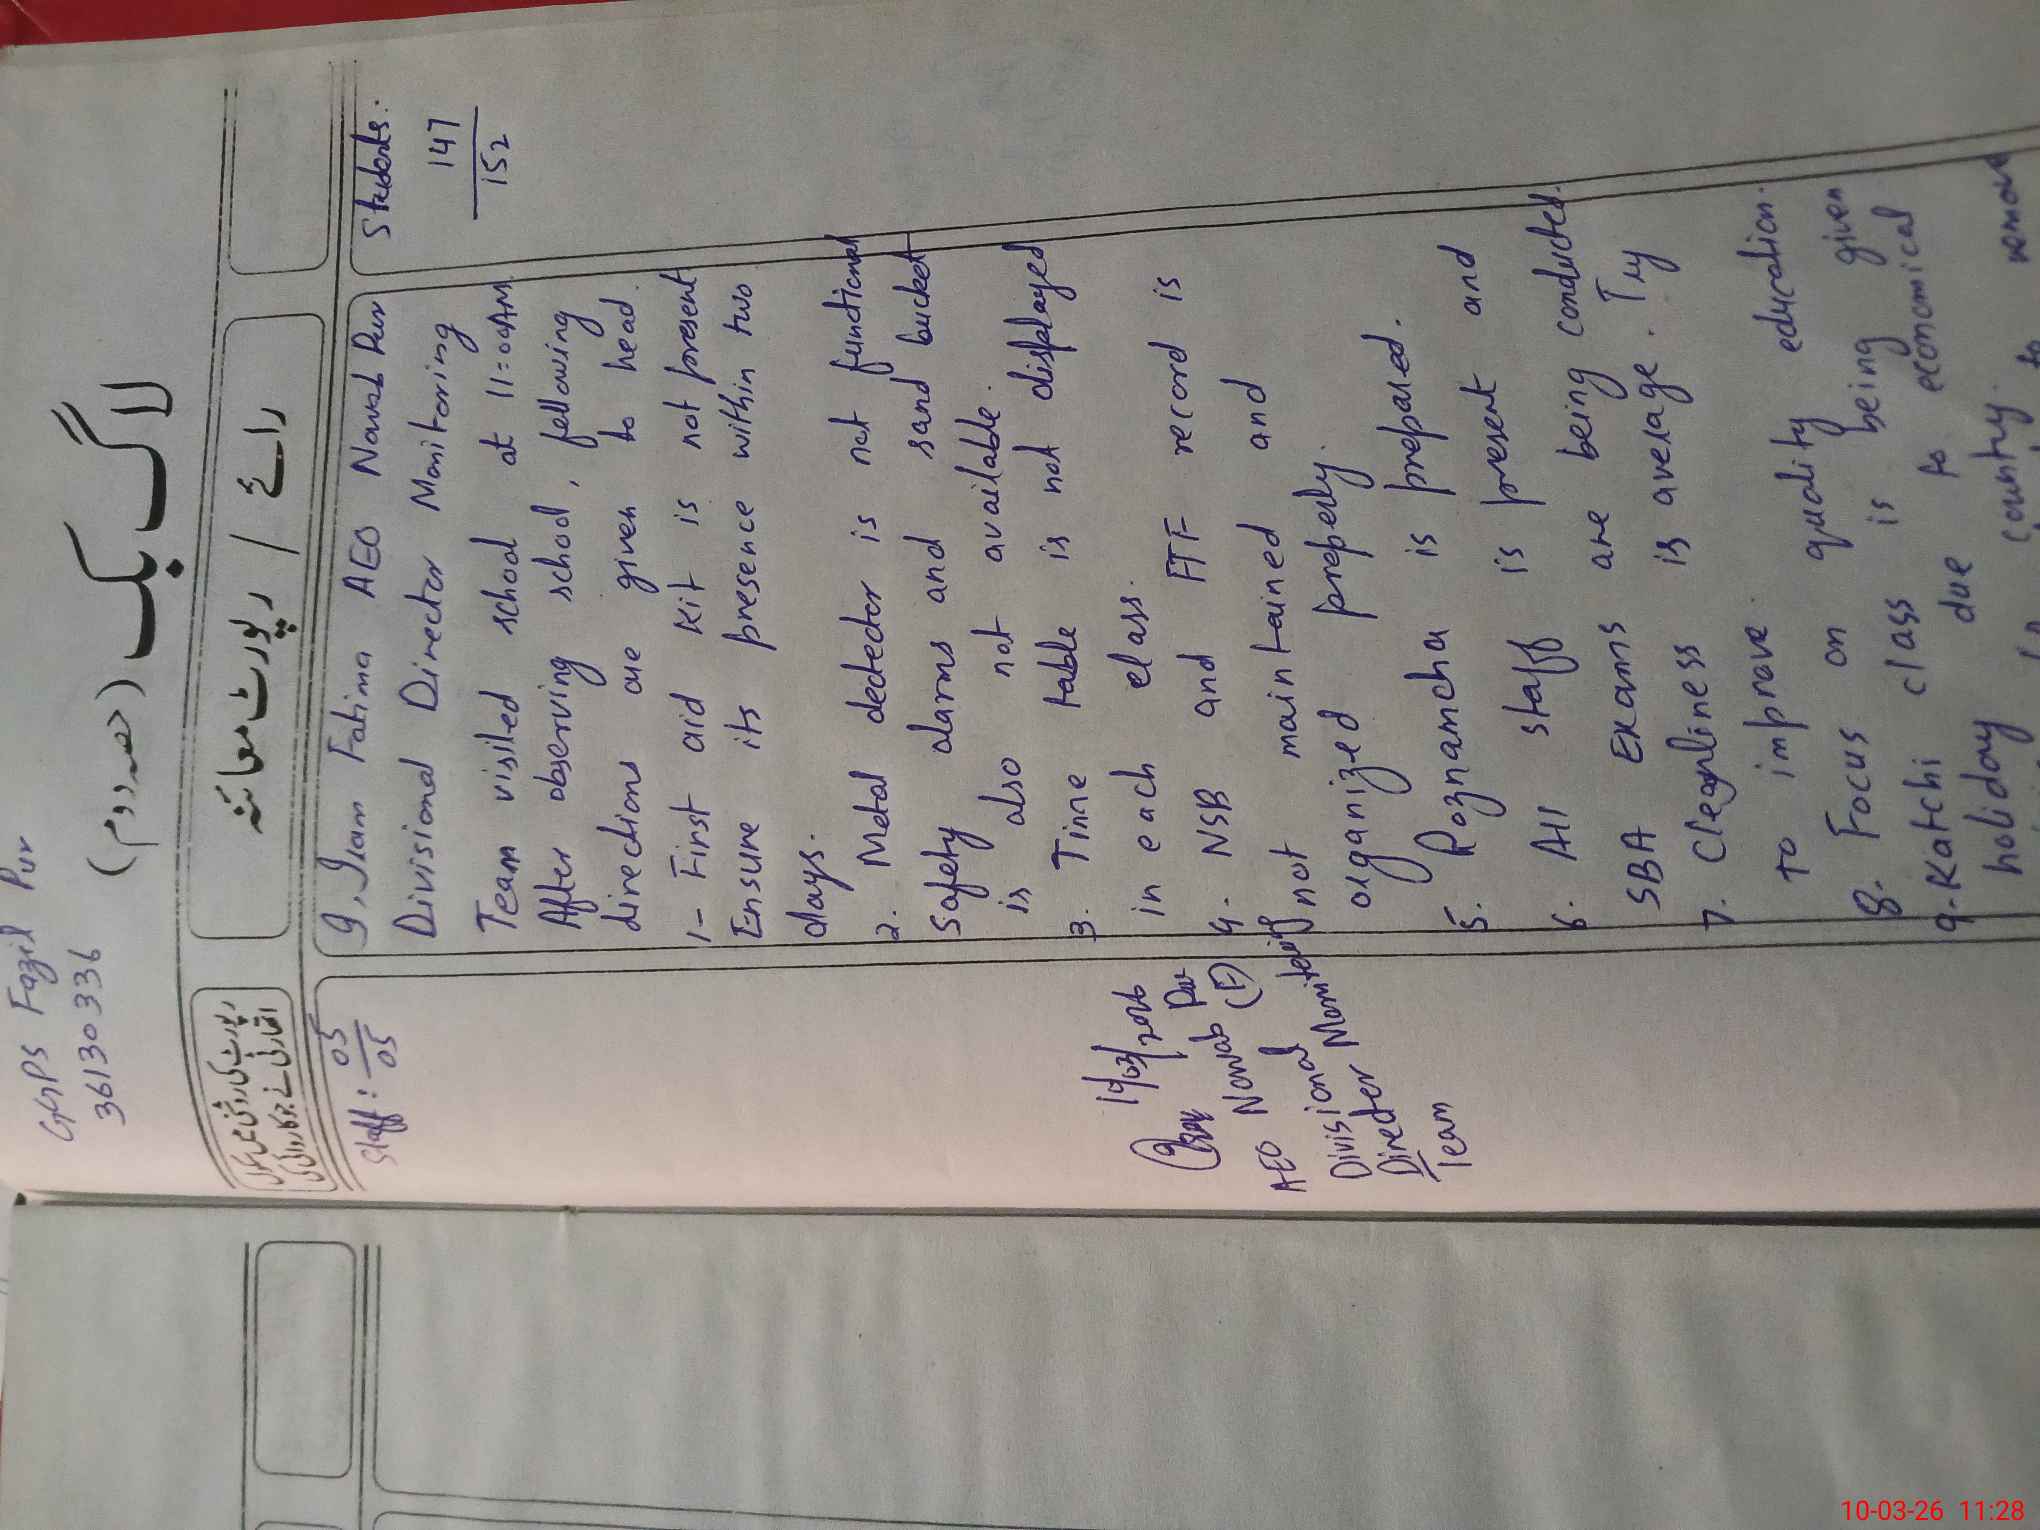 GGPS Fazil Pur
36130336
لاگ بک (حصہ دوم)
رپورٹ کی روشنی میں مجاز اتھارٹی نے جو کارروائی کی
رپورٹ معائنہ / رائے
Staff: 05/05
Students:
147
152
I, Iram Fatima AEO Nawab Pur
Divisional Director Monitoring
Team visited school at 11:00AM
After observing school, following
directions are given to head.
1- First aid kit is not present
Ensure its presence within two
days.
2. Metal detector is not functional
Safety alarms and sand bucket
is also not available.
3. Time table is not displayed
in each class.
4. NSB and FTF record is
not maintained and
organized properly.
5. Roznamcha is prepared.
6. All staff is present and
SBA Exams are being conducted.
7. Cleanliness is average. Try
to improve
8. Focus on quality education.
9. Katchi class is being given
holiday due to economical
country to remove
10/03/2026
AEO Nawab Pur (F)
Divisional
Director Monitoring
Team
10-03-26 11:28